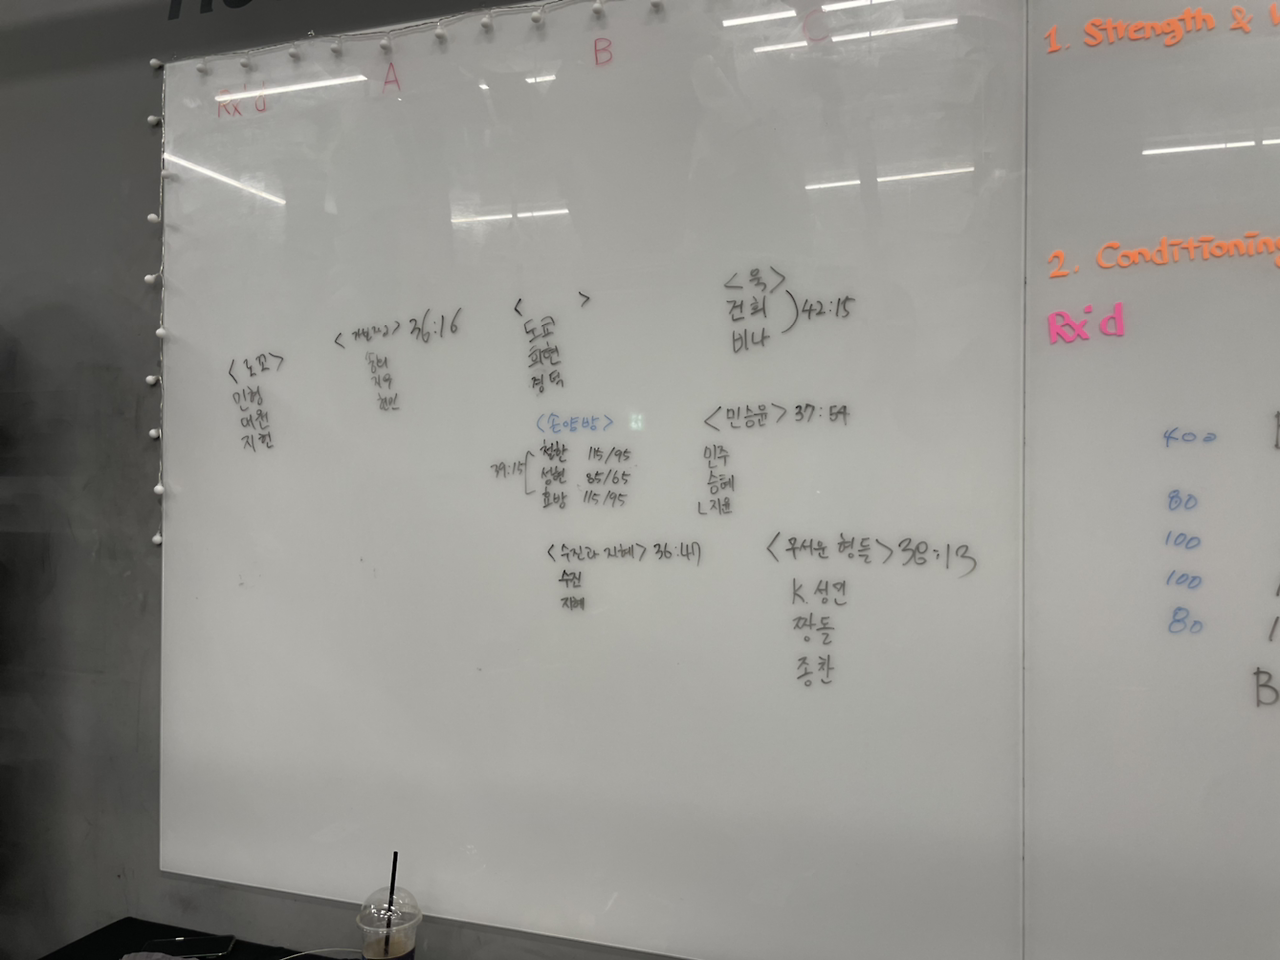 Rx'd
A
B
C
<도꼬>
민형
대원
지헌
36:16
지우
현민
< >
도교
희현
경덕
<손양방>
39:15
철한 115/95
성현 85/65
효방 115/95
<수진과 지혜> 36:47
수진
지혜
<욱>
건희
비나
42:15
<민승윤> 37:54
민주
승혜
L 지윤
<무서운 형들> 38:13
K.성연
짱돌
종찬
1. Strength &
2. Conditioning
Rx'd
400
80
100
100
80
B